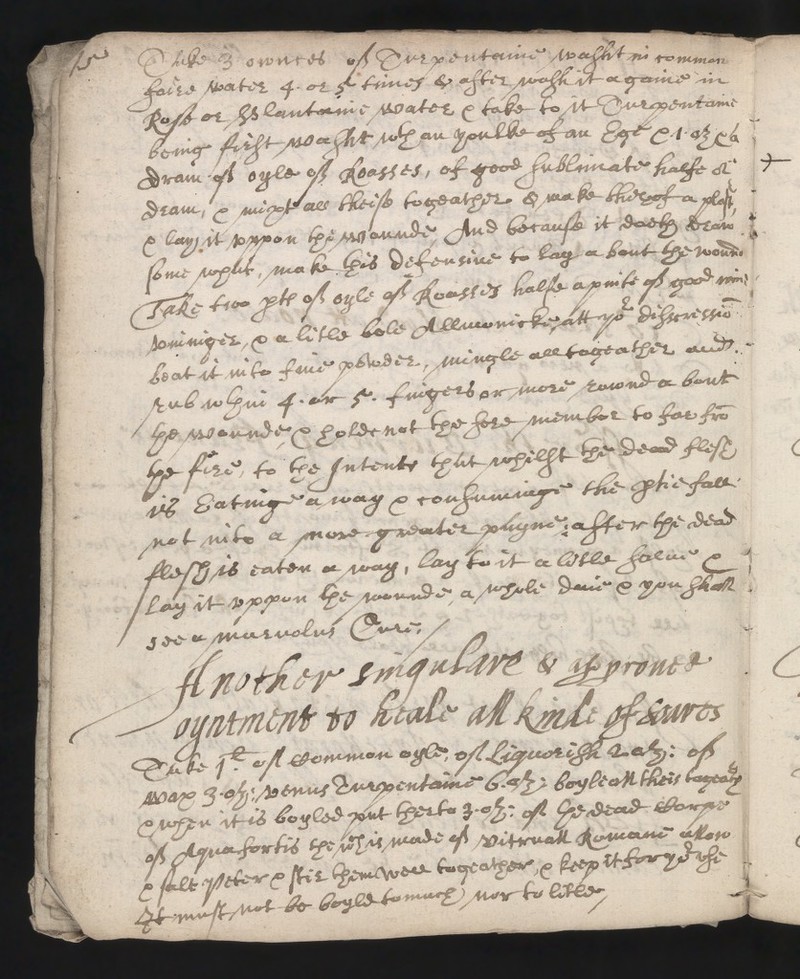 15
Take 3 ownces of Turpentaine washt in common
faire water 4. or 5 times & after wash it againe in
Rose or Plantaine water & take to it Turpentaine
being first washt wth an youlke of an Ege & 1. oz & a
dram of oyle of Roasses, of good sublimate halfe a
dram, & mixe all theise togeather & make therof a plast,
& lay it uppon the wounde, And because it doeth draw
some whit, make this defensive to lay a bout the wound
Take two ptes of oyle of Roasses halfe a pinte of good wine
vininiger, & a litle bole Allmonicke, att yor discressiō
beat it into fine powder, mingle all togeather and
rub whin 4. or 5. fingers or more rownd a bout
the wounde, & holde not the sore member to far frō
the fire, to the Intente that whilst the dead flesh
is Eatinge a way & consuminge the ptie fall
not into a more greater payne: after the dead
flesh is eaten a way, lay to it a litle salve &
lay it uppon the wounde a whole daie & you shall
see a marvolus Cure,
Another singulare & approued
oyntment to heale all kinde of Sares
Take 1l of Common oyle, of Liquorish 2 oz: of
wax 3. oz: venus Turpentaine 6. oz: boyle all theis togeather
& when it is boyled put therto 3. oz: of the dead Corpse
of Aquafortis the wch is made of vitriall Romane allow
& salt peter & stir them well togeather, & keep it for yor use
It must not be boyld to much, nor to litle,